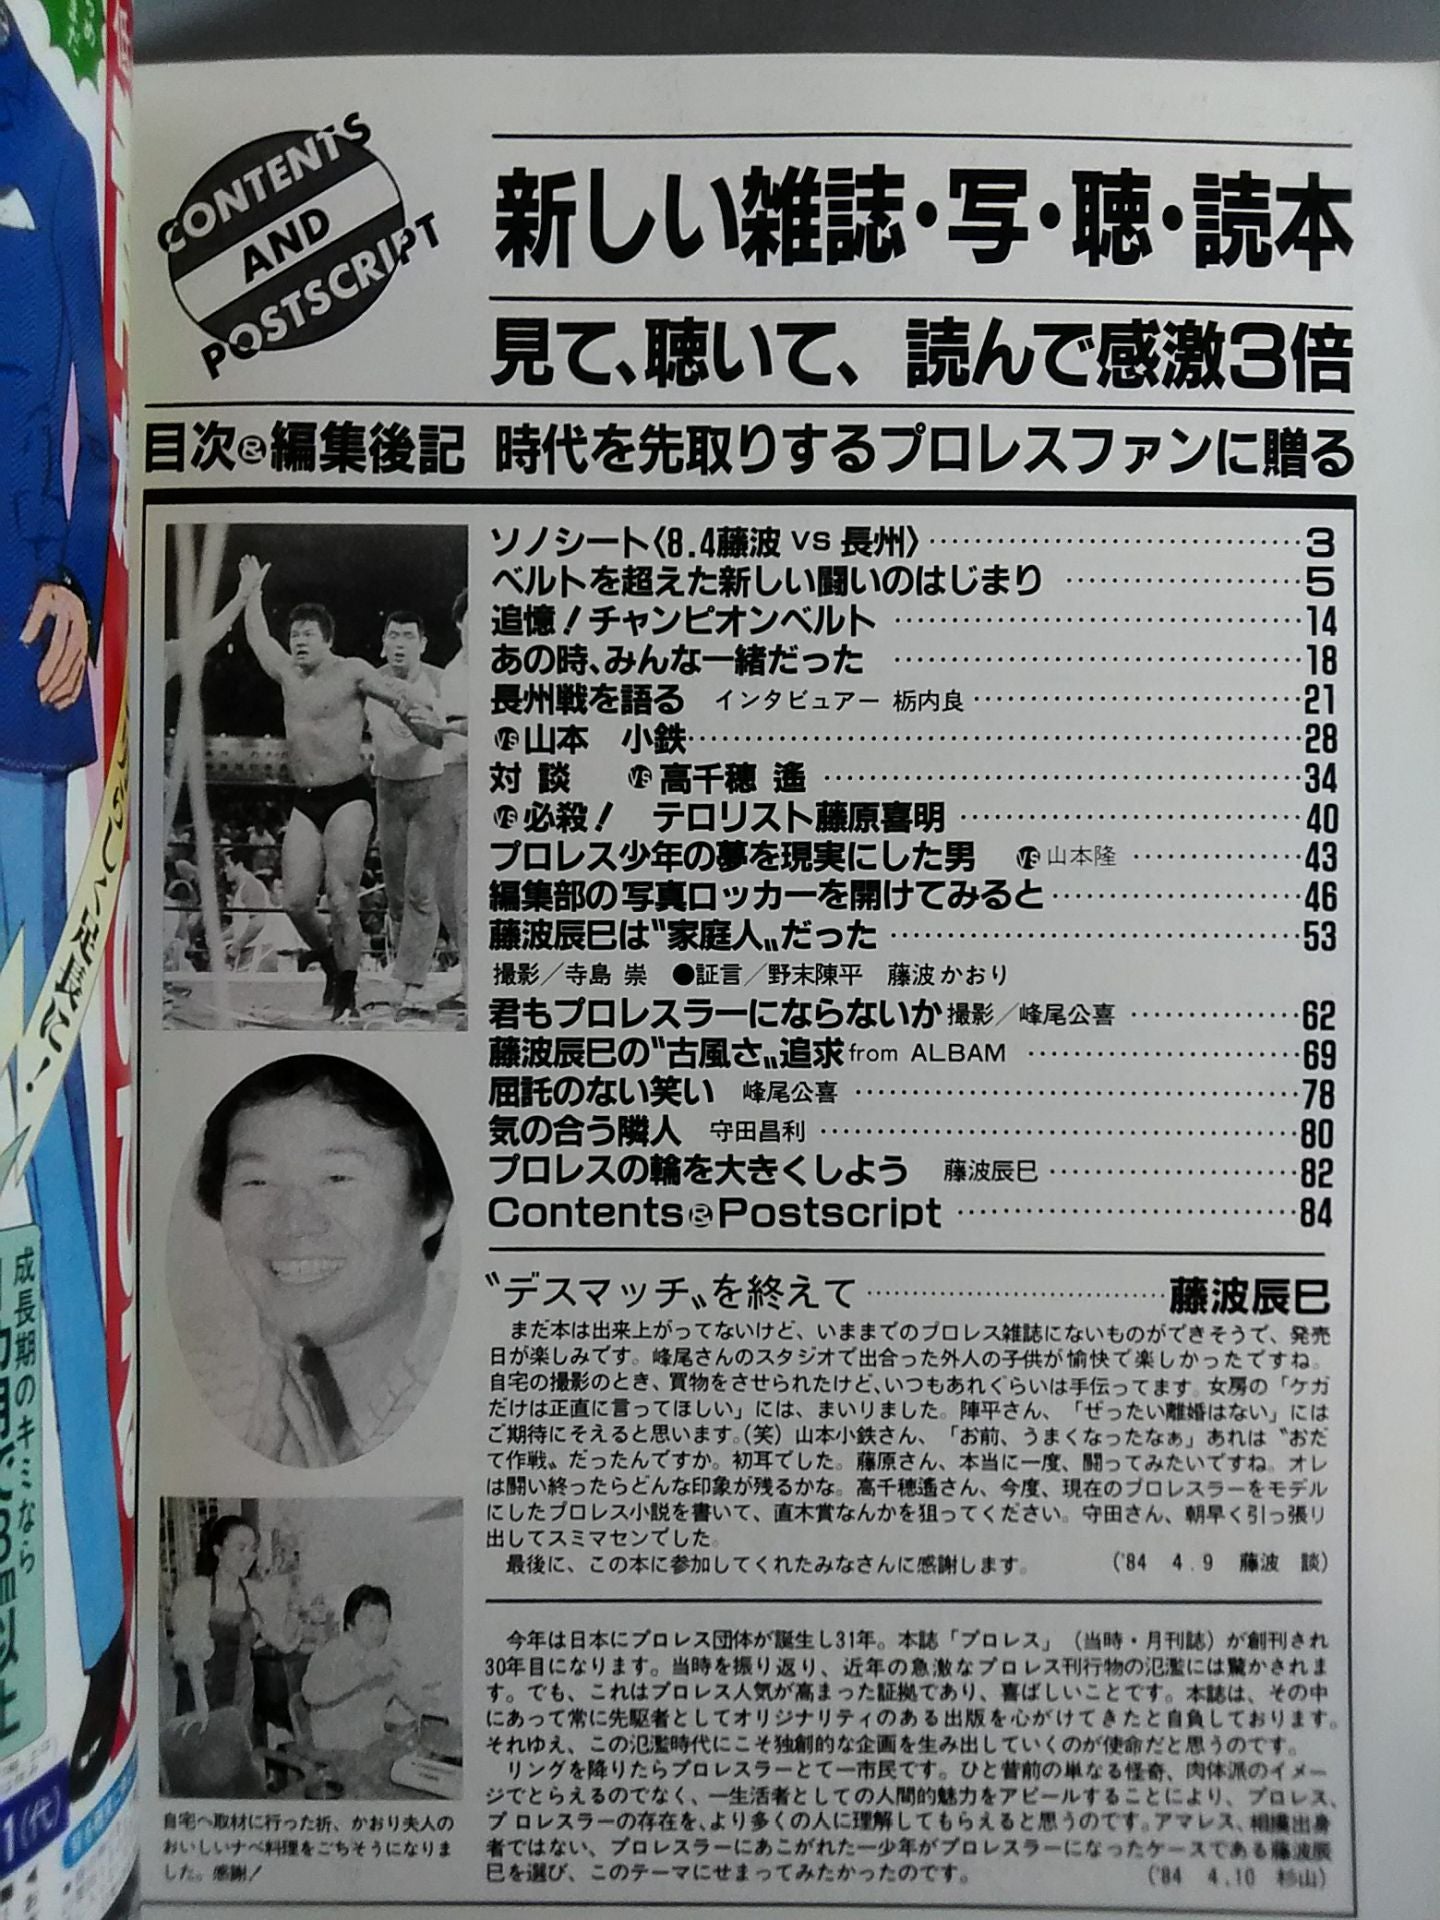 CONTENTS
AND
POSTSCRIPT
新しい雑誌・写・聴・読本
見て、聴いて、読んで感激3倍
目次&編集後記 時代を先取りするプロレスファンに贈る
ソノシート〈8.4藤波 vs 長州〉……………………………3
ベルトを超えた新しい闘いのはじまり……………………5
追憶！チャンピオンベルト………………………………14
あの時、みんな一緒だった………………………………18
長州戦を語る インタビュアー 栃内良…………………………21
vs山本 小鉄………………………………………………28
対談 vs高千穂 遙………………………………………34
vs必殺！ テロリスト藤原喜明……………………………40
プロレス少年の夢を現実にした男 vs山本隆……………43
編集部の写真ロッカーを開けてみると……………………46
藤波辰巳は〝家庭人〟だった………………………………53
撮影／寺島 崇 ●証言／野末陳平 藤波かおり
君もプロレスラーにならないか 撮影／峰尾公喜……………62
藤波辰巳の〝古風さ〟追求 from ALBAM……………………69
屈託のない笑い 峰尾公喜…………………………………78
気の合う隣人 守田昌利……………………………………80
プロレスの輪を大きくしよう 藤波辰巳……………………82
Contents&Postscript…………………………84
〝デスマッチ〟を終えて……………………………藤波辰巳
まだ本は出来上がってないけど、いままでのプロレス雑誌にないものができそうで、発売
日が楽しみです。峰尾さんのスタジオで出合った外人の子供が愉快で楽しかったですね。
自宅の撮影のとき、買物をさせられたけど、いつもあれぐらいは手伝ってます。女房の「ケガ
だけは正直に言ってほしい」には、まいりました。陳平さん、「ぜったい離婚はない」には
ご期待にそえると思います。(笑) 山本小鉄さん、「お前、うまくなったなぁ」あれは〝おだ
て作戦〟だったんですか。初耳でした。藤原さん、本当に一度、闘ってみたいですね。オレ
は闘い終ったらどんな印象が残るかな。高千穂遙さん、今度、現在のプロレスラーをモデル
にしたプロレス小説を書いて、直木賞なんかを狙ってください。守田さん、朝早く引っ張り
出してスミマセンでした。
最後に、この本に参加してくれたみなさんに感謝します。 ('84 4.9 藤波 談)
今年は日本にプロレス団体が誕生し31年。本誌「プロレス」（当時・月刊誌）が創刊され
30年目になります。当時を振り返り、近年の急激なプロレス刊行物の氾濫には驚かされま
す。でも、これはプロレス人気が高まった証拠であり、喜ばしいことです。本誌は、その中
にあって常に先駆者としてオリジナリティのある出版を心がけてきたと自負しております。
それゆえ、この氾濫時代にこそ独創的な企画を生み出していくのが使命だと思うのです。
リングを降りたらプロレスラーとて一市民です。ひと昔前の単なる怪奇、肉体派のイメー
ジでとらえるのでなく、一生活者としての人間的魅力をアピールすることにより、プロレス、
プロレスラーの存在を、より多くの人に理解してもらえると思うのです。アマレス、相撲出身
者ではない、プロレスラーにあこがれた一少年がプロレスラーになったケースである藤波辰
巳を選び、このテーマにせまってみたかったのです。 ('84 4.10 杉山)
自宅へ取材に行った折、かおり夫人の
おいしいナベ料理をごちそうになりま
した。感謝！
成長期のキミなら